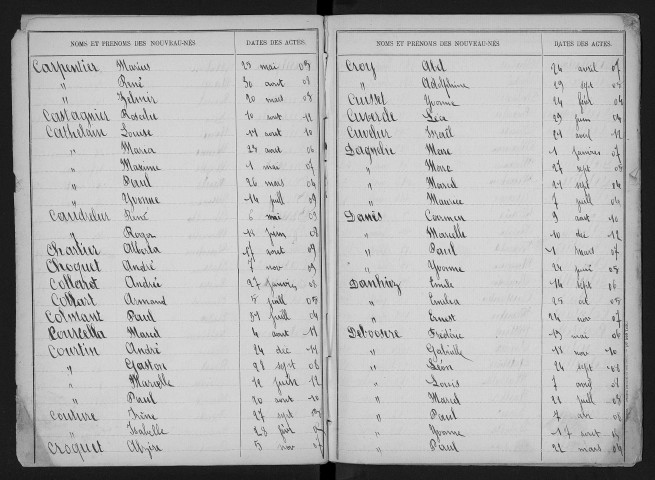 NOMS ET PRÉNOMS DES NOUVEAU-NÉS DATES DES ACTES.
Carpentier Marius 29 mai 05
" René 30 aout 08
" Zelmir 20 mars 08
Castagnier Rosalie 10 aout 12
Cathelain Louise 14 aout 10
" Maria 23 aout 06
" Maxime 1 mai 07
" Paul 26 mars 04
" Yvonne 14 juill 09
Caudrelier René 6 mai 09
" Roger 14 juin 08
Chartier Alberta 17 aout 09
Choquet André 7 nov 09
Collabot André 27 janvier 08
Collart Armand 5 juill 05
Colmant Paul 31 juill 04
Courcella Marcel 4 aout 11
Courtin André 24 dec 11
" Gaston 28 sept 06
" Marcelle 12 juin 12
" Paul 20 aout 10
Couture Irène 27 sept
" Isabelle 23 fevr
Croquet Alzire 5 nov
NOMS ET PRÉNOMS DES NOUVEAU-NÉS DATES DES ACTES.
Croy Abel 24 avril 07
" Adolphine 29 spt 05
Crusset Yvonne 24 févr 04
Cuverde Léa 29 juin 04
Cuvelier Ismaël 21 avril 12
Dagnelie Marc 1 janvier 07
" Marc 27 sept 08
" Marcel 21 sept 04
" Maurice 7 juill 04
Danès Carmen 9 aout 10
" Marcelle 10 dec 12
" Paul 1 mars 07
" Yvonne 24 08
Danhiez Emile 14 sept 06
" Emilia 25 oct 05
" Ernest 24 nov 07
Deboosere Frédéric 19 mai 06
" Gabrielle 11 nov 10
" Léon 24 sept 08
" Louis 7 avril 08
" Marcel 21 juill 08
" Paul 7 08
" Yvonne 17 aout
" Paul 22 mars 04